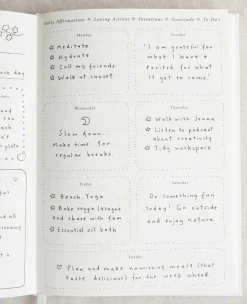 Daily Affirmations ☆ Loving Actions ☆ Intentions ☆ Gratitude ☆ To-Do's
Monday
Meditate
Hydrate
Call my friends
Walk at sunset
Tuesday
'I am grateful for
what I have +
excited for what
is yet to come.'
Wednesday
Slow down...
Make time for
regular breaks.
Thursday
Walk with Jenna
Listen to podcast
about creativity
Tidy workspace
Friday
Beach Yoga
Bake veggie lasagne
and share with fam
Essential oil bath
Saturday
Do something fun
today! Go outside
and enjoy nature.
Sunday
Plan and make nourishing meals (that
taste delicious) for the week ahead.
each day.